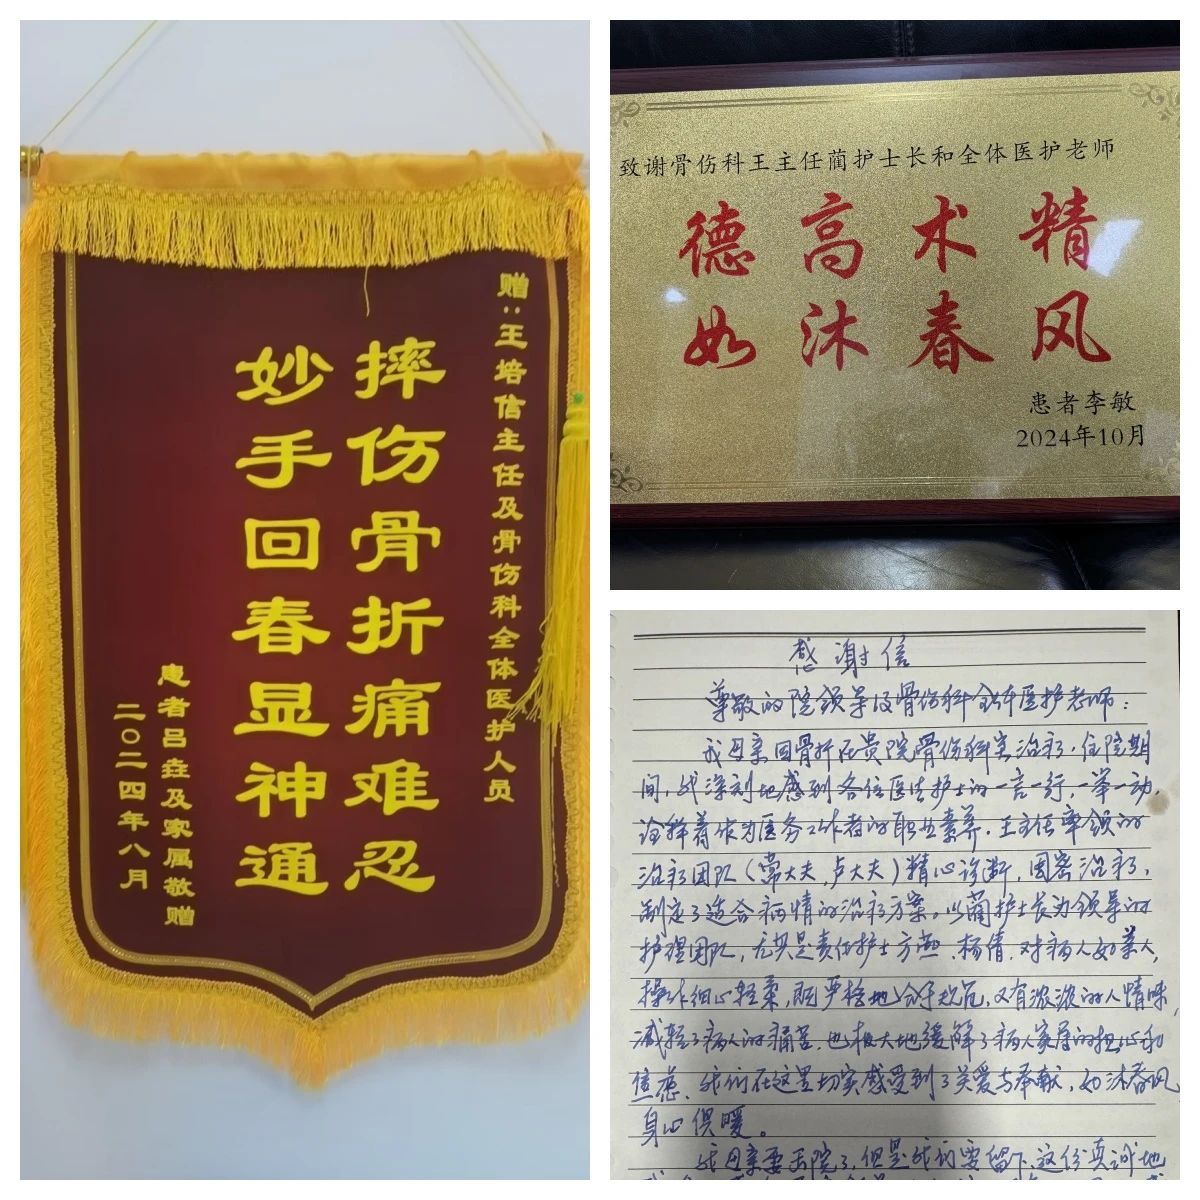 赠:王培信主任及骨伤科全体医护人员
摔伤骨折痛难忍
妙手回春显神通
患者吕垚及家属敬赠
二〇二四年八月
致谢骨伤科王主任蔺护士长和全体医护老师
德高术精
如沐春风
患者李敏
2024年10月
感谢信
尊敬的院领导及骨伤科全体医护老师:
我母亲因骨折在贵院骨伤科室治疗,住院期
间,我深刻地感到各位医生护士的一言一行,一举一动,
诠释着作为医务工作者的职业素养。王主任率领的
治疗团队(常大夫,卢大夫)精心诊断,周密治疗,
制定了适合病情的治疗方案。以蔺护士长为领导的
护理团队,尤其是责任护士方燕、杨倩,对病人如亲人,
操作细心轻柔,既严格地分手规范,又有浓浓的人情味,
减轻了病人的痛苦,也极大地缓解了病人家属的担心和
焦虑。我们在这里切实感受到了关爱与奉献,如沐春风,
身心俱暖。
我母亲要出院了,但是我们要留下这份真诚地